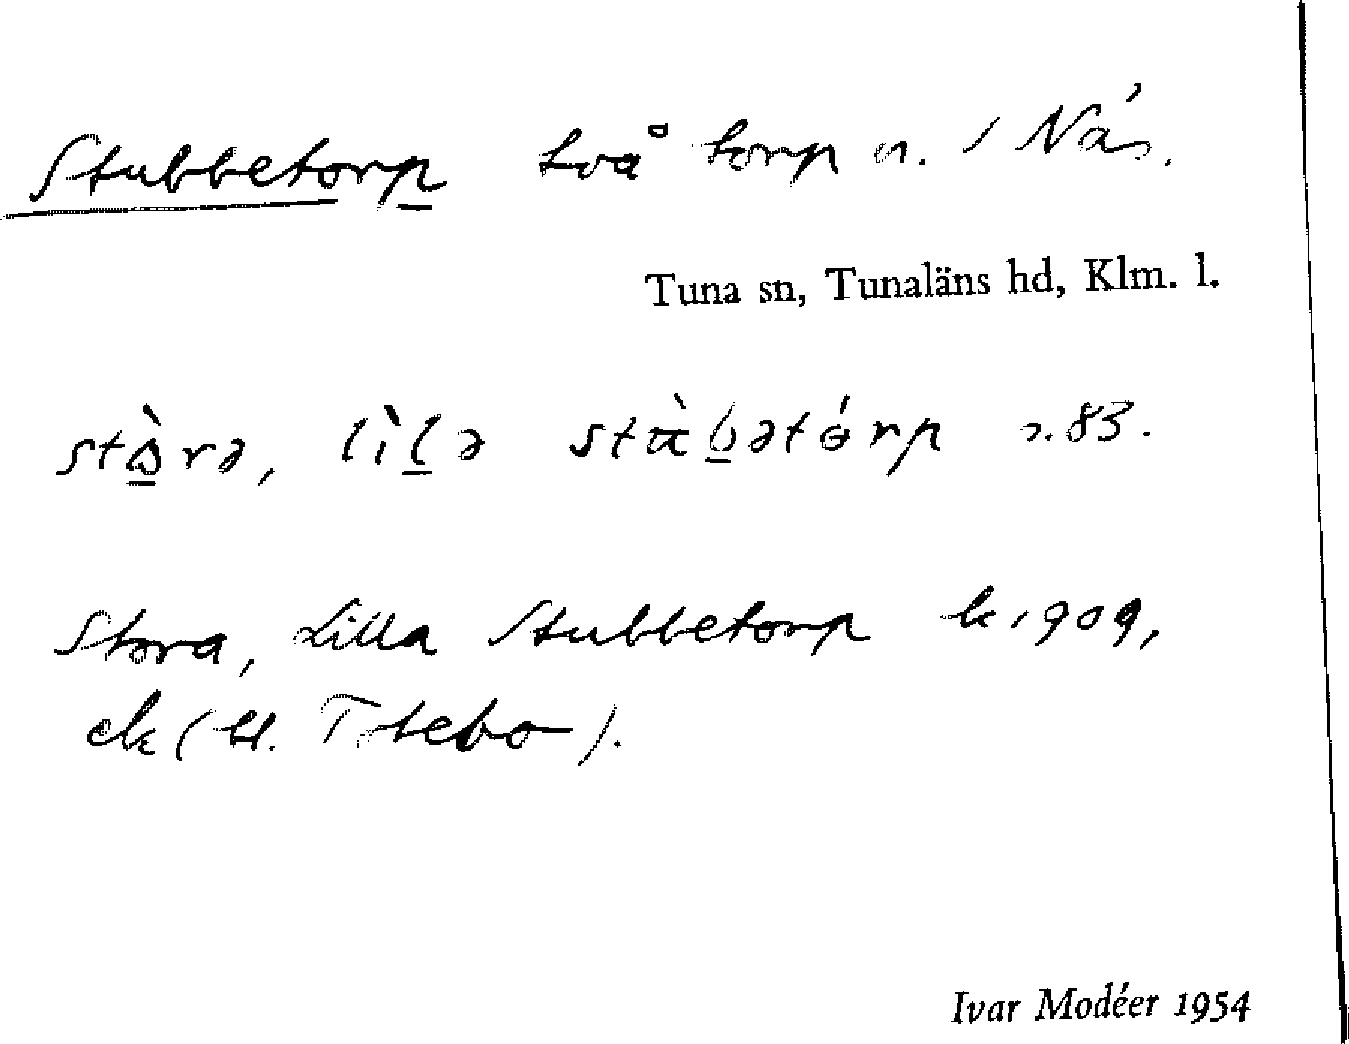 Stubbetorp två torp u. / Näs.
Tuna sn, Tunaläns hd, Klm. l.
stò̱rə, lìḻə stàḇətórp s. 83.
Stora, Lilla Stubbetorp k 1909,
ek (bl. Totebo).
Ivar Modéer 1954